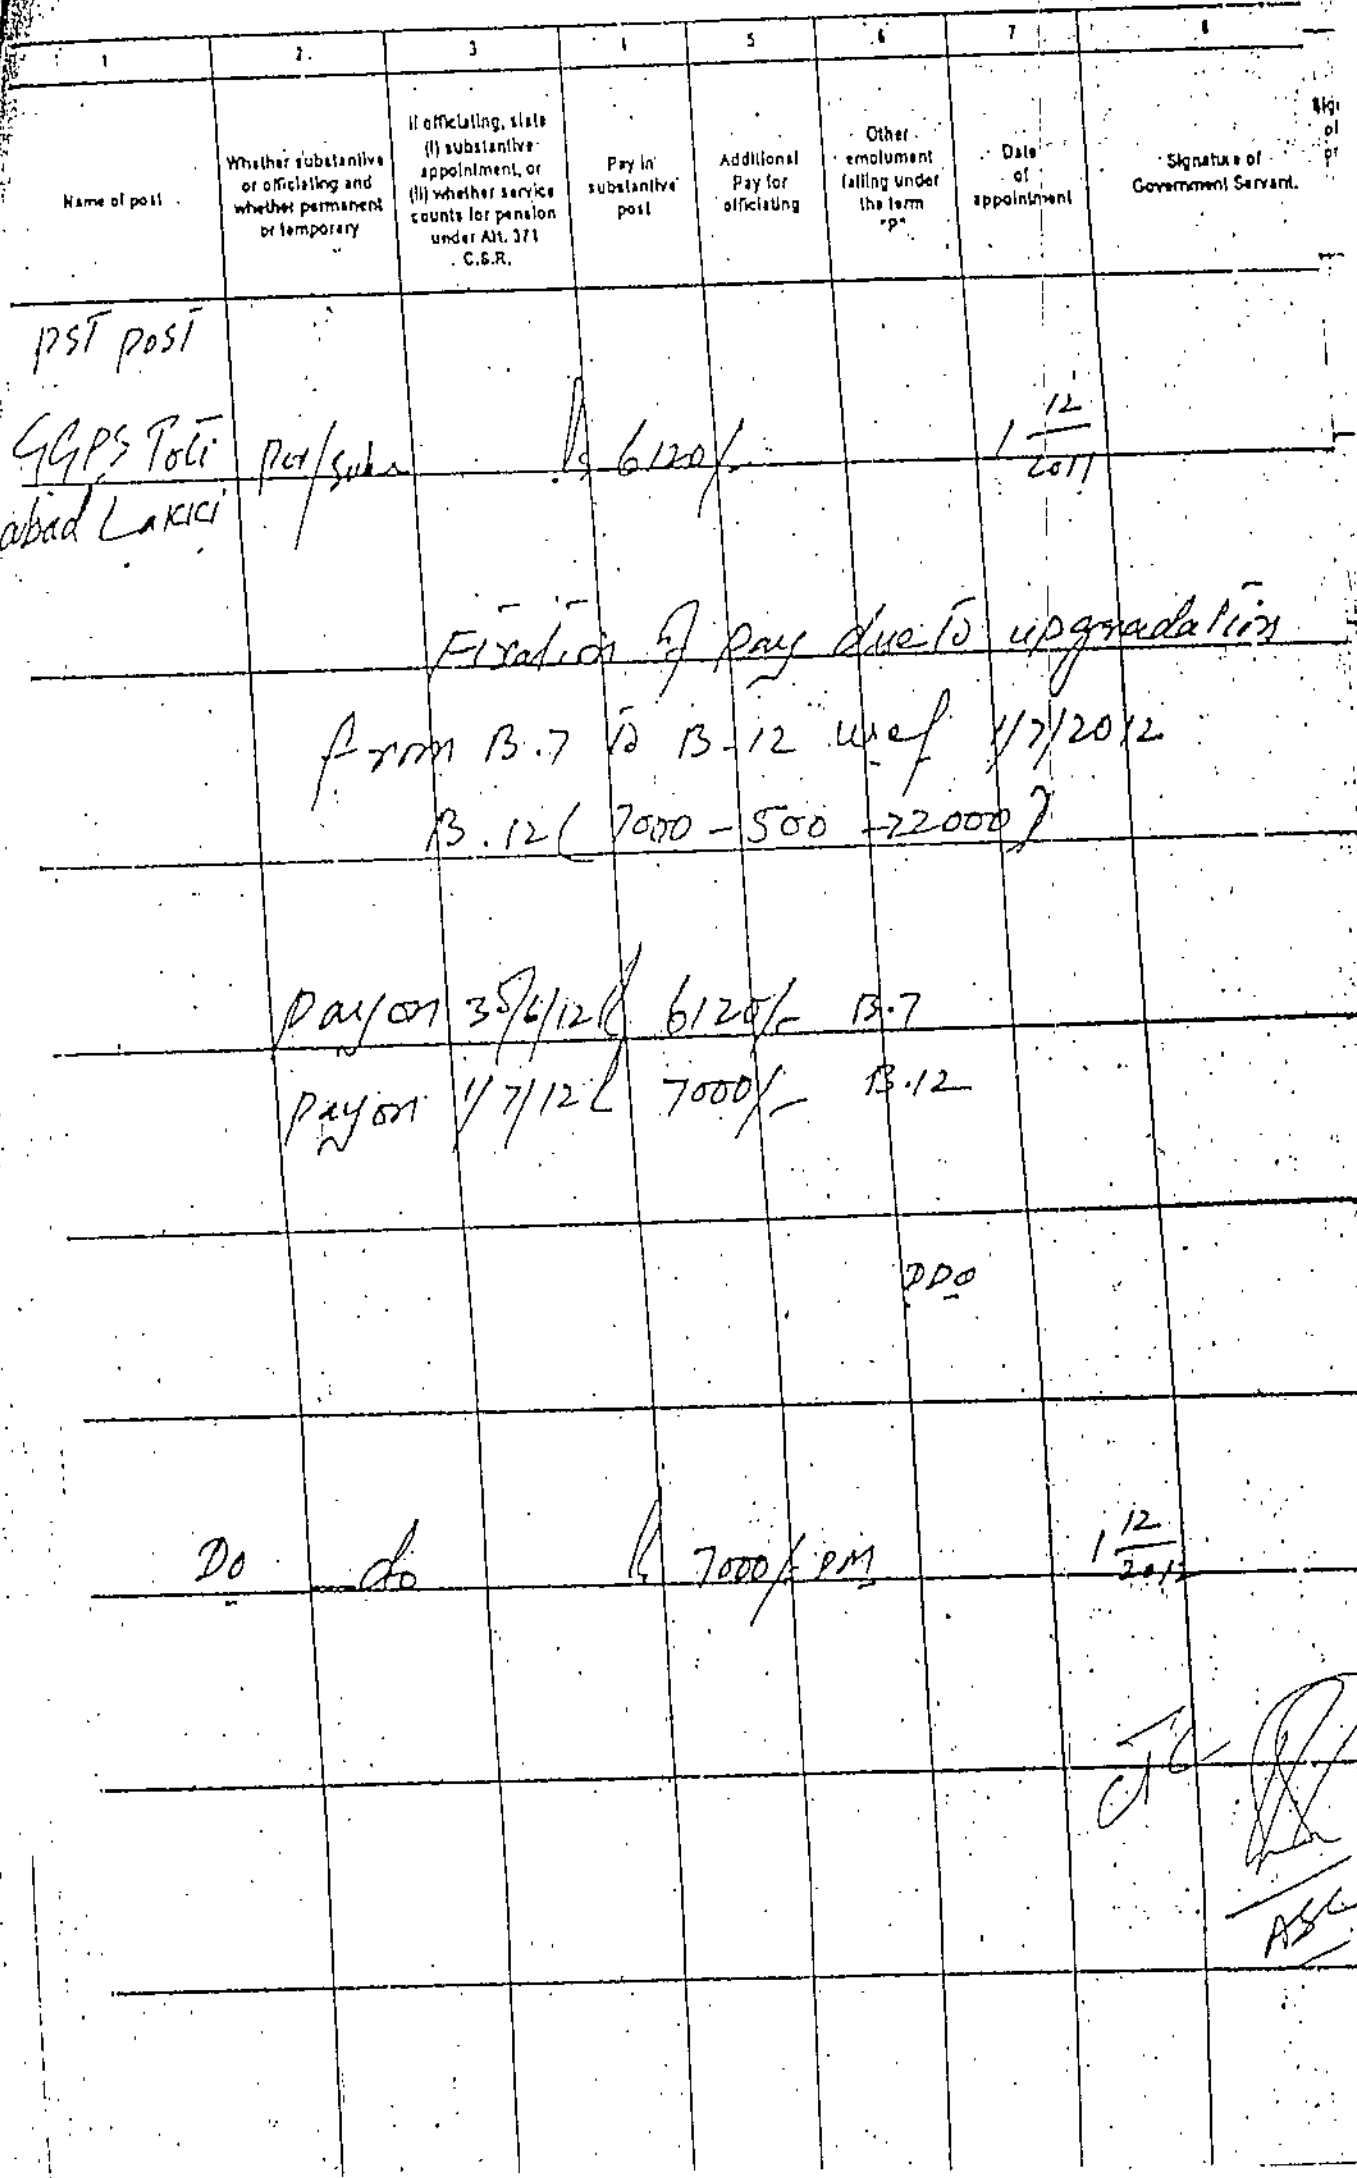 1 2. 3 4 5 6 7 8
Name of post
Whether substantive
or officiating and
whether permanent
or temporary
If officiating, state
(I) substantive
appointment, or
(II) whether service
counts for pension
under Alt. 371
C.S.R.
Pay in
substantive
post
Additional
Pay for
officiating
Other
emolument
falling under
the term
"P"
Date
of
appointment
Signature of
Government Servant.
PST Post
GGPS Toti Per/Subs Rs 6120/- 1 12/2011
abad Lakki
Fixation of pay due to upgradation
from B.7 to B-12 w.e.f 1/7/2012
B.12 ( 7000 - 500 - 22000 )
Pay on 30/6/12 Rs 6120/- B.7
Pay on 1/7/12 Rs 7000/- B.12
DDO
Do do Rs 7000/- PM 1 12/2012